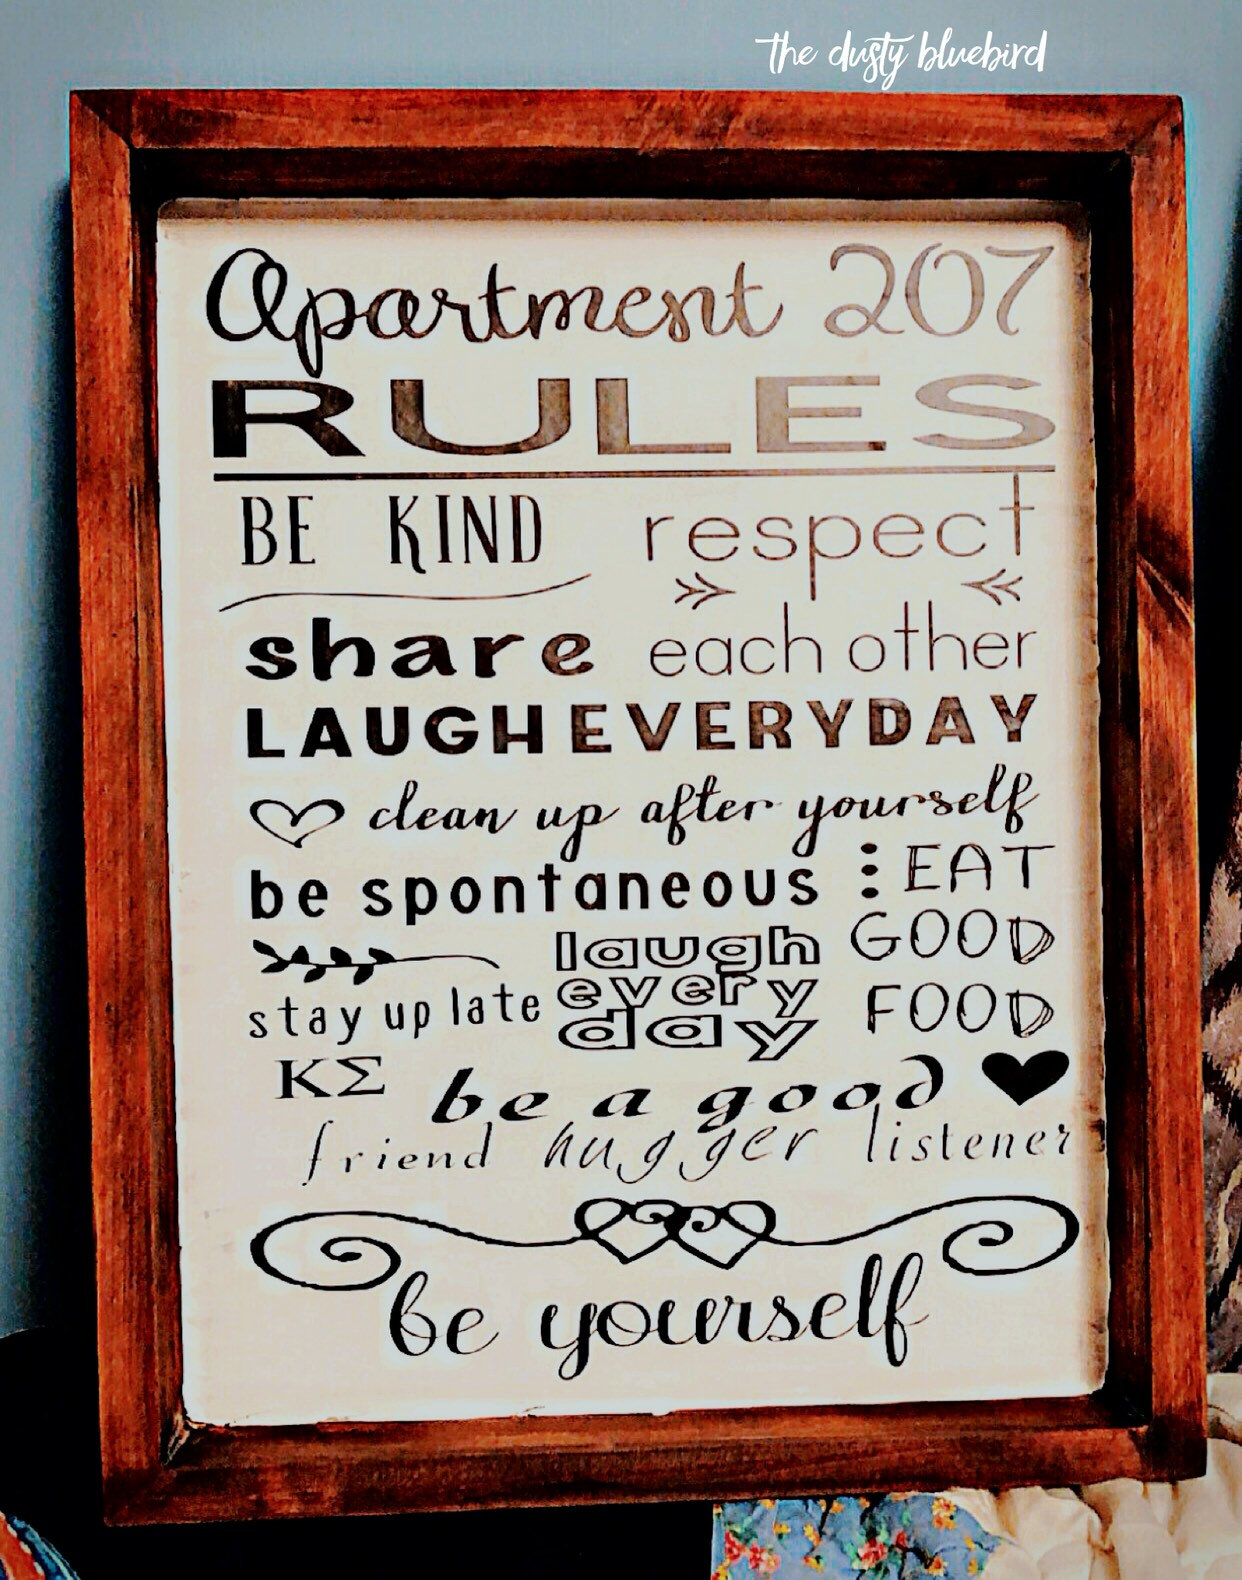 the dusty bluebird
Apartment 207
RULES
BE KIND
respect
each other
share
LAUGH EVERYDAY
clean up after yourself
be spontaneous
EAT
GOOD
FOOD
laugh
every
day
stay up late
ΚΣ
be a good
friend hugger listener
be yourself